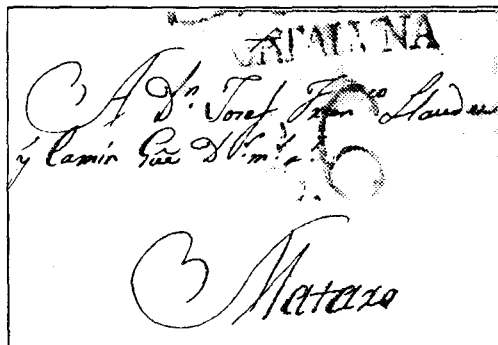 CATALUÑA
A Dn. Josef Franco Llauder
y Camin Gūe Ds. ms. as.
6
Mataro